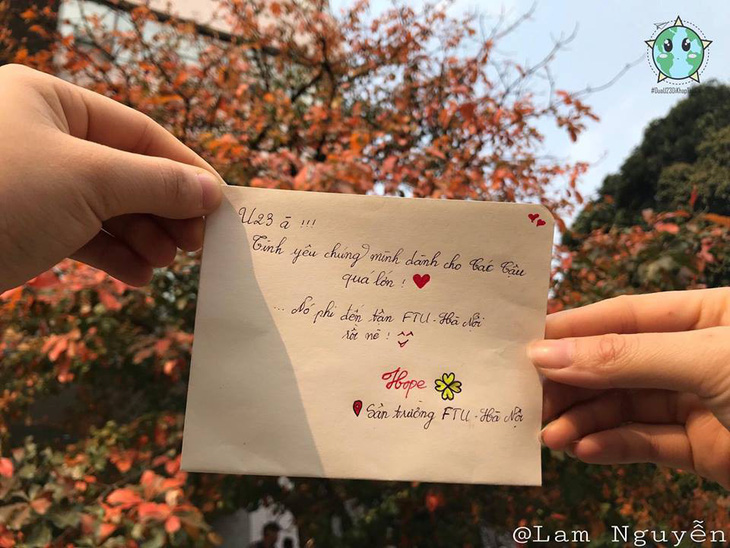 U23 à !!!
Tình yêu chúng mình dành cho Các Cậu
quá lớn !
... Nó phi đến tận FTU - Hà Nội
rồi nè !
Hope
Sân trường FTU - Hà Nội
@Lam Nguyễn